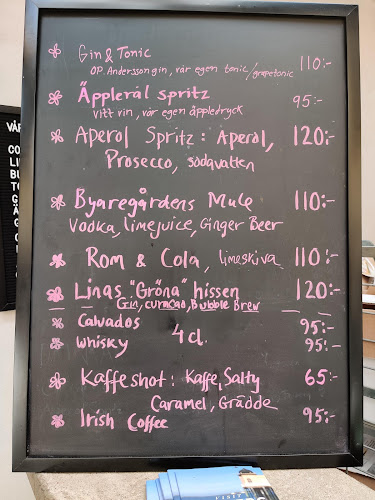 Gin & Tonic 110:-
OP. Andersson gin, vår egen tonic/grapetonic
Äpplerål spritz 95:-
vitt vin, vår egen äppledryck
Aperol Spritz: Aperol, 120:-
Prosecco, sodavatten
Byaregårdens Mule 110:-
Vodka, limejuice, Ginger Beer
Rom & Cola, limeskiva 110:-
Linas "Gröna" hissen 120:-
Gin, curacao, Bubble Brew
Calvados 95:-
4 cl.
Whisky 95:-
Kaffeshot: Kaffe, Salty 65:-
Caramel, Grädde
Irish Coffee 95:-
VÅR